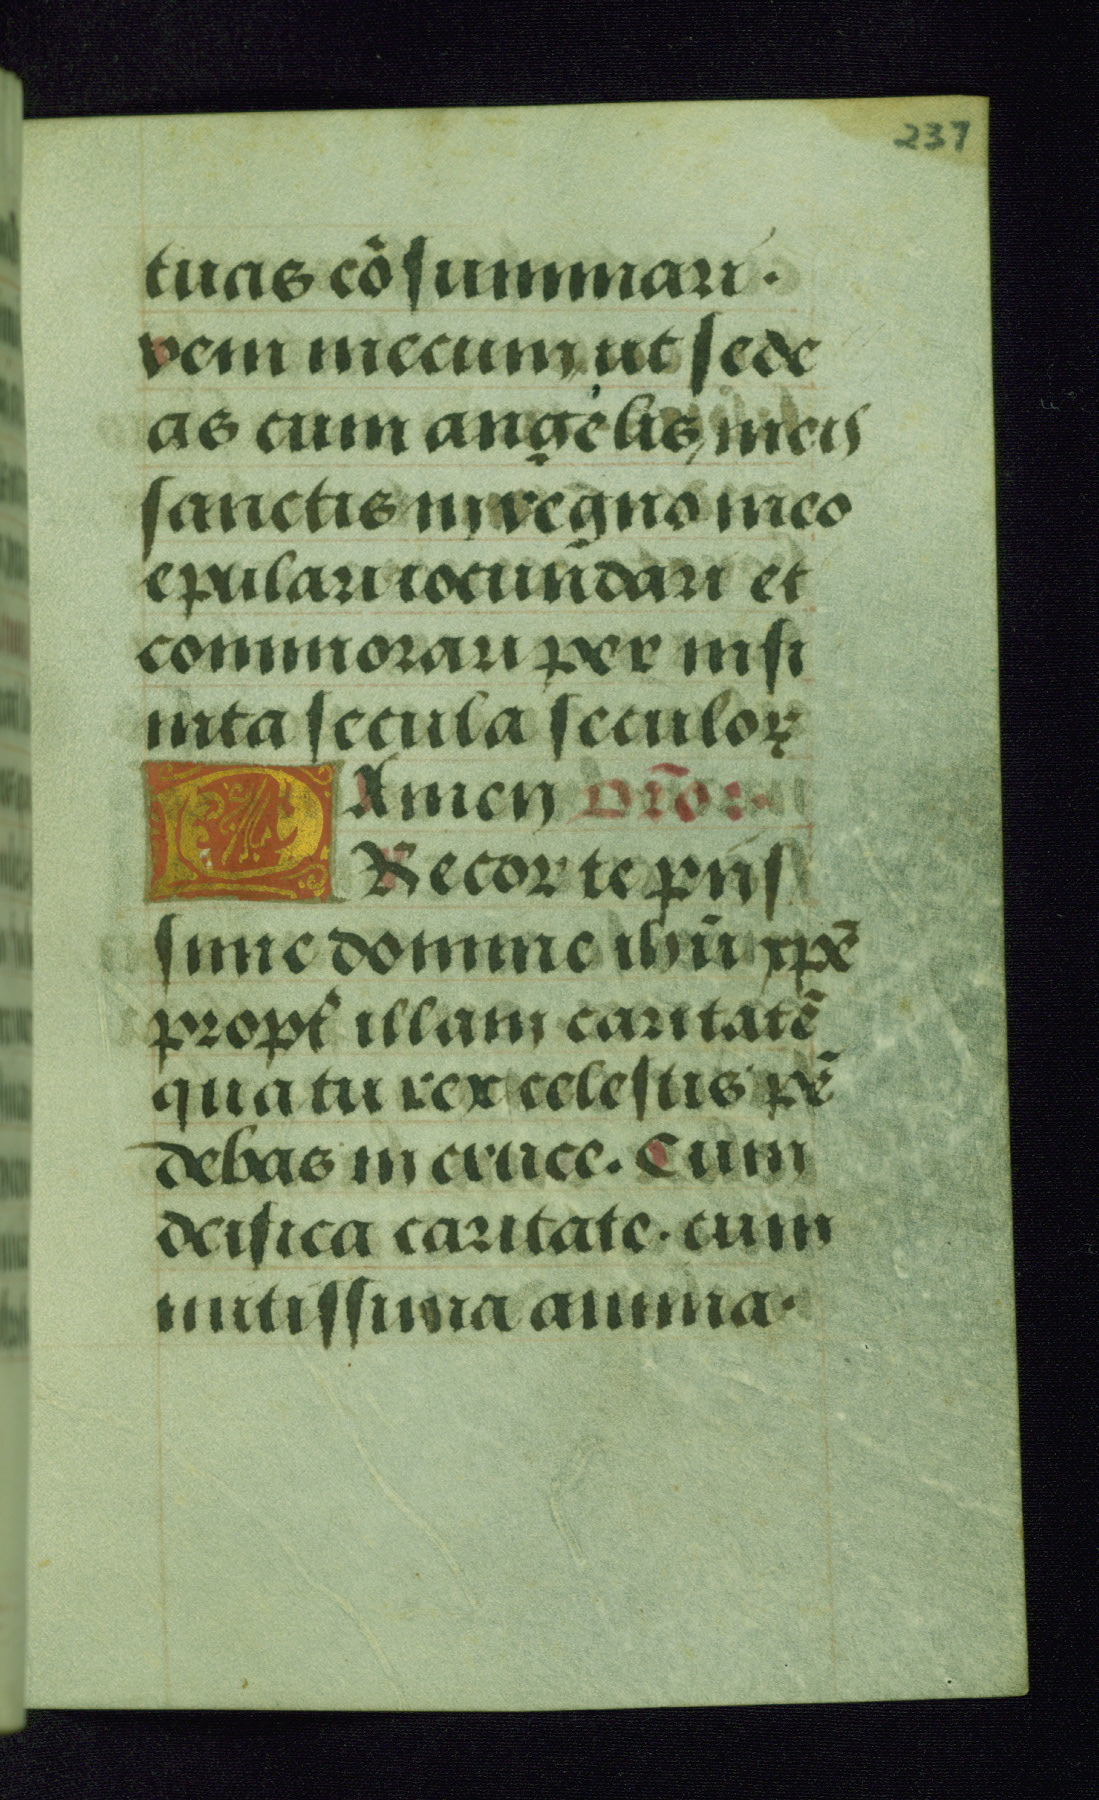 237
tuas cōsummari.
veni mecum ut sede
as cum angelis meis
sanctis in regno meo
epulari iocundari et
commorari per infi
nita secula seculoꝝ
Amen Orō:.
DRecor te piis
sime domine ihū xp̄e
propt̄ illam caritatē
qua tu rex celestis pē
debas in cruce. Cum
deifica caritate. cum
mitissima anima.